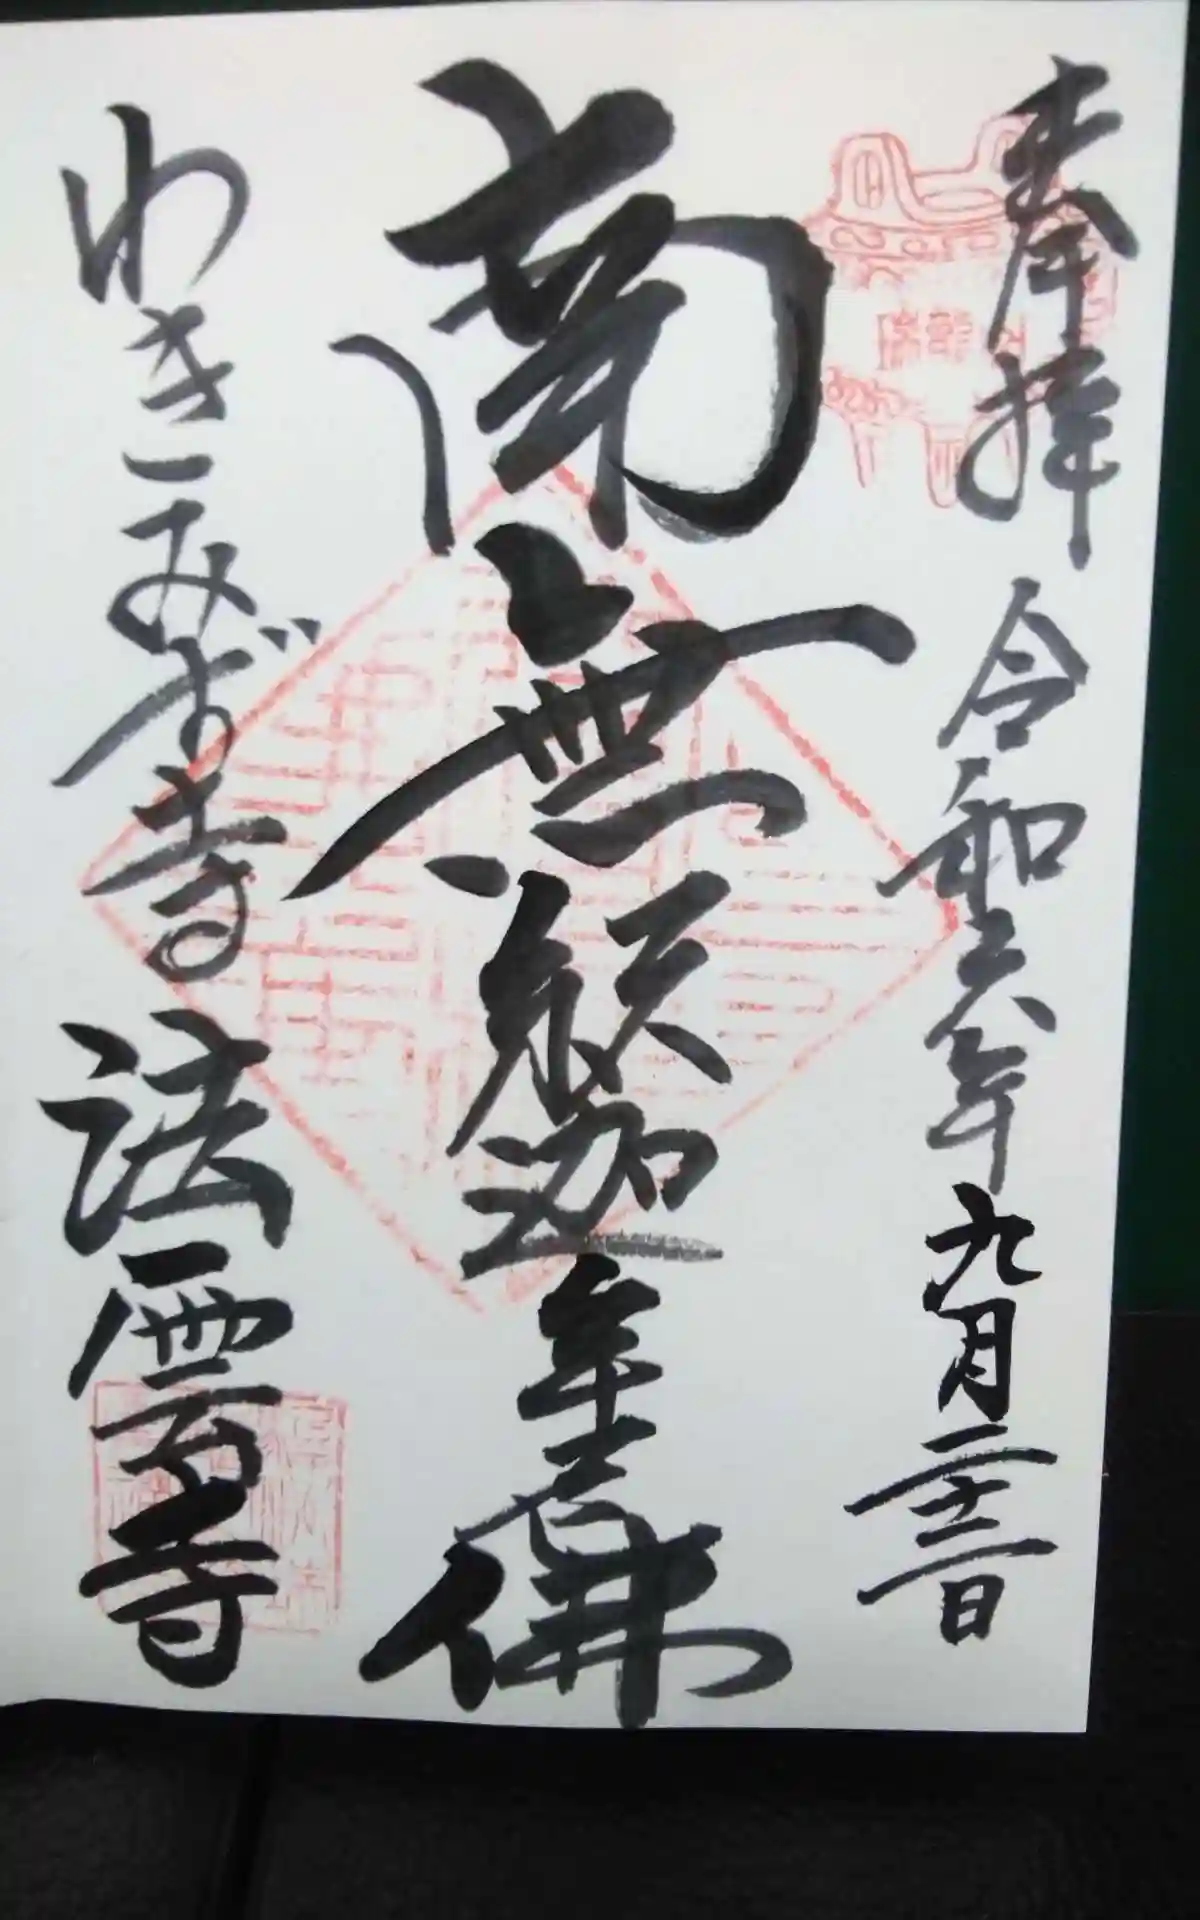 奉拝 令和六年九月二十三日
南無釈迦牟尼佛
わきみず寺 法雲寺